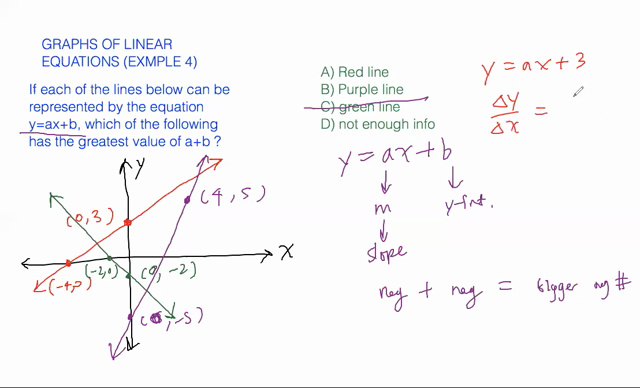 GRAPHS OF LINEAR
EQUATIONS (EXMPLE 4)
If each of the lines below can be
represented by the equation
y=ax+b, which of the following
has the greatest value of a+b ?
A) Red line
B) Purple line
C) green line
D) not enough info
y = ax + 3
Δy
Δx =
y = ax + b
m
y-int.
slope
neg + neg = bigger neg #
y
x
(4, 5)
(0, 3)
(-2, 0)
(0, -2)
(-4, 0)
(0, -5)